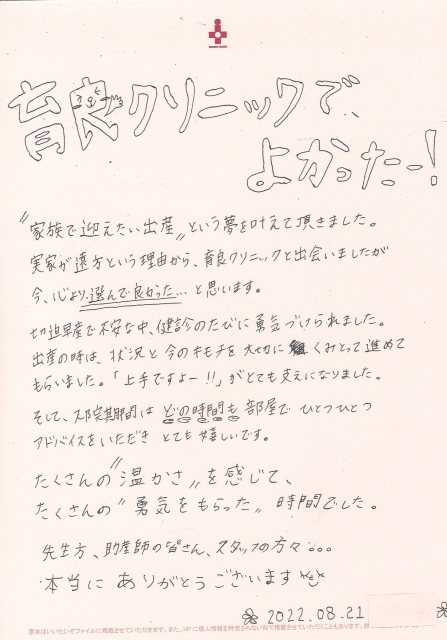 育良クリニックで、
よかったー!
"家族で迎えたい出産"という夢を叶えて頂きました。
実家が遠方という理由から、育良クリニックと出会いましたが
今、心より、選んで良かった…と思います。
切迫早産で不安な中、健診のたびに勇気づけられました。
出産の時は、状況と今のキモチを大切にくみとって進めて
もらいました。「上手ですよー!!」がとても支えになりました。
そして、入院期間はどの時間も部屋でひとつひとつ
アドバイスをいただきとても嬉しいです。
たくさんの"温かさ"を感じて、
たくさんの"勇気をもらった"時間でした。
先生方、助産師の皆さん、スタッフの方々…
本当にありがとうございます
2022.08.21
原本はいいたいぞファイルに掲載させていただきます。また、HPに個人情報を特定されない形で掲載させていただくこともあります。